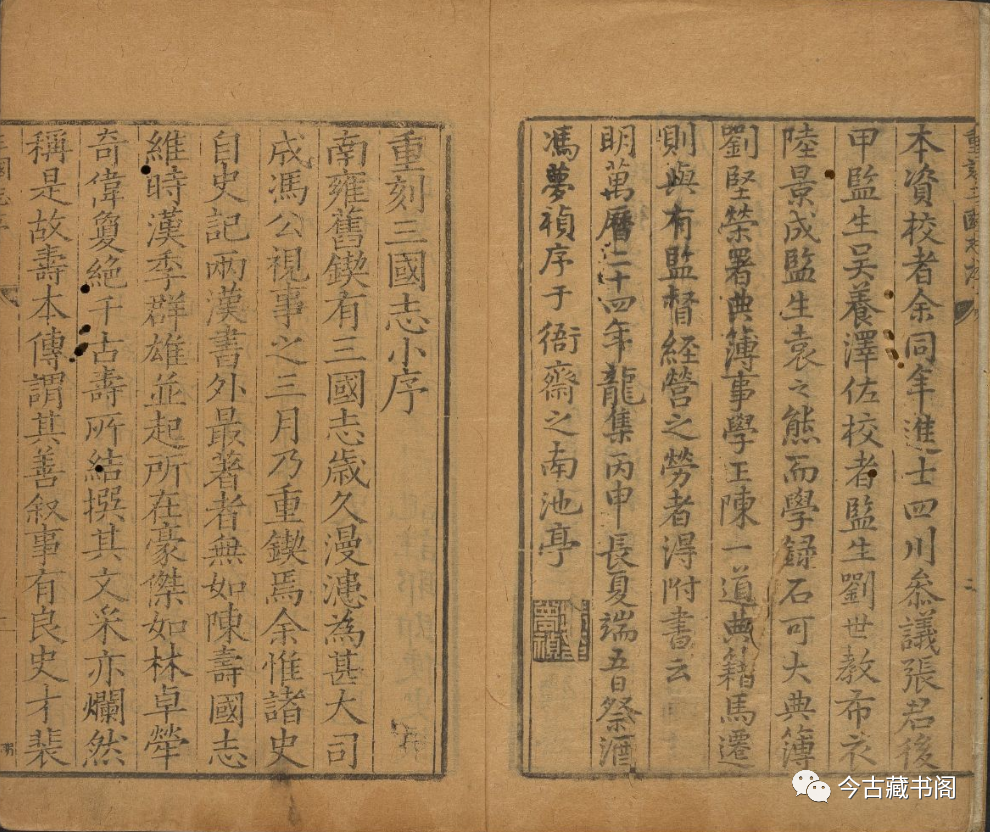 重刻三國志序
本資校者余同年進士四川參議張君後
甲監生吴養澤佐校者監生劉世教布衣
陸景成監生袁之熊而學録石可大典簿
劉堅榮署典簿事學正陳一道典籍馬遷
則與有監督經營之勞者得附書云
明萬曆二十四年龍集丙申長夏端五日祭酒
馮夢禎序于衙齋之南池亭
重刻三國志小序
南雍舊鍥有三國志歲久漫漶為甚大司
成馮公視事之三月乃重鍥焉余惟諸史
自史記兩漢書外最著者無如陳壽國志
維時漢季群雄並起所在豪傑如林卓犖
奇偉敻絕千古壽所結撰其文采亦爛然
稱是故壽本傳謂其善叙事有良史才裴
今古藏书阁